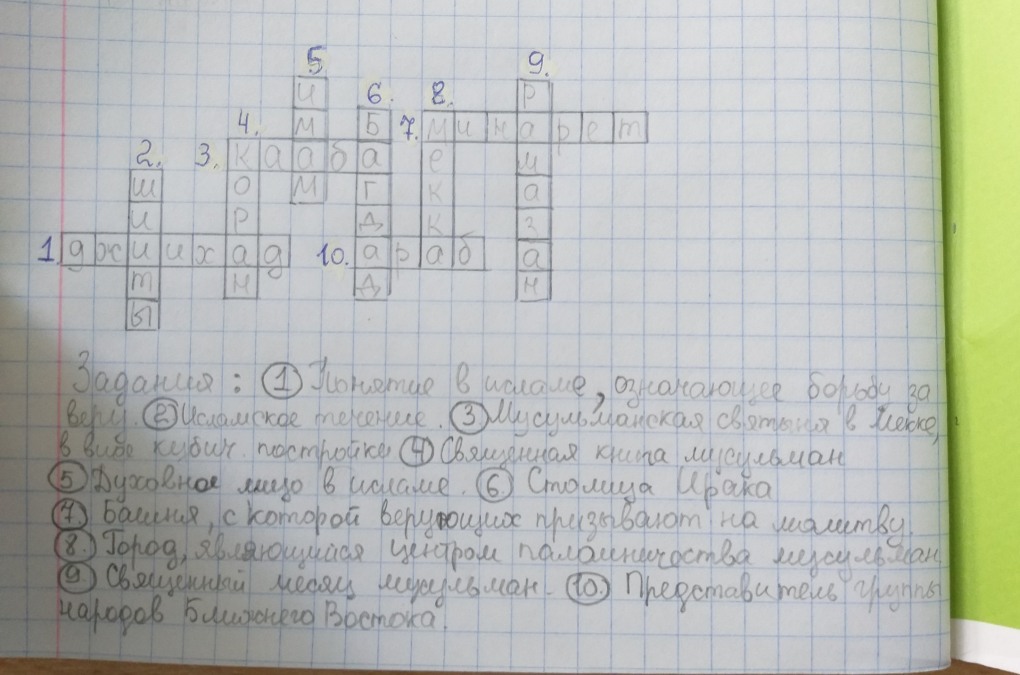 5 9.
И 6. 8. Р
4. М Б 7. М и н а р е т
2. 3. К а а б а е м
Ш О М Г К а
И Р Д К з
1. д ж и и х а д 10. а р а б а
т Н Д н
ы
Задания: ① Понятие в исламе, означающее борьбу за
веру. ② Исламское течение. ③ Мусульманская святыня в Мекке,
в виде кубич. постройки ④ Священная книга мусульман
⑤ Духовное лицо в исламе. ⑥ Столица Ирака
⑦ Башня, с которой верующих призывают на молитву.
⑧ Город, являющийся центром паломничества мусульман
⑨ Священный месяц мусульман. ⑩ Представитель группы
народов Ближнего Востока.